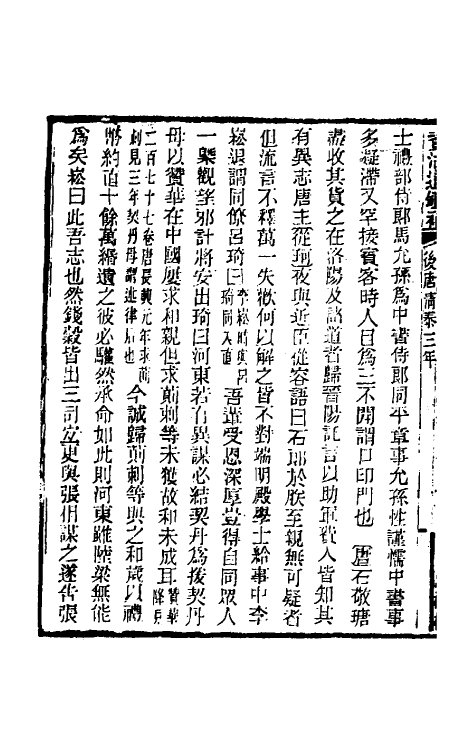 資治通鑑補 後唐清泰三年
士禮部侍郎馬允孫爲中書侍郎同平章事允孫性謹懦中書事
多凝滯又罕接賓客時人目爲三不開謂口印門也 唐石敬瑭
盡收其貨之在洛陽及諸道者歸晉陽託言以助軍從人皆知其
有異志唐主從珂夜與近臣從容語曰石郎於朕至親無可疑者
但流言不釋萬一失歡何以解之皆不對端明殿學士給事中李
崧退謂同僚呂琦曰李崧時與呂琦同入直吾輩受恩深厚豈得自同衆人
一槩觀望邪計將安出琦曰河東若有異謀必結契丹爲援契丹
母以贊華在中國屢求和親但求萴剌等未獲故和未成耳贊華降見
二百七十七卷唐長興元年求萴剌見三年契丹母謂述律后也今誠歸萴剌等與之和歲以禮
幣約直十餘萬緡遺之彼必驩然承命如此則河東雖陸梁無能
爲矣崧曰此吾志也然錢穀皆出三司宜更與張相謀之遂告張